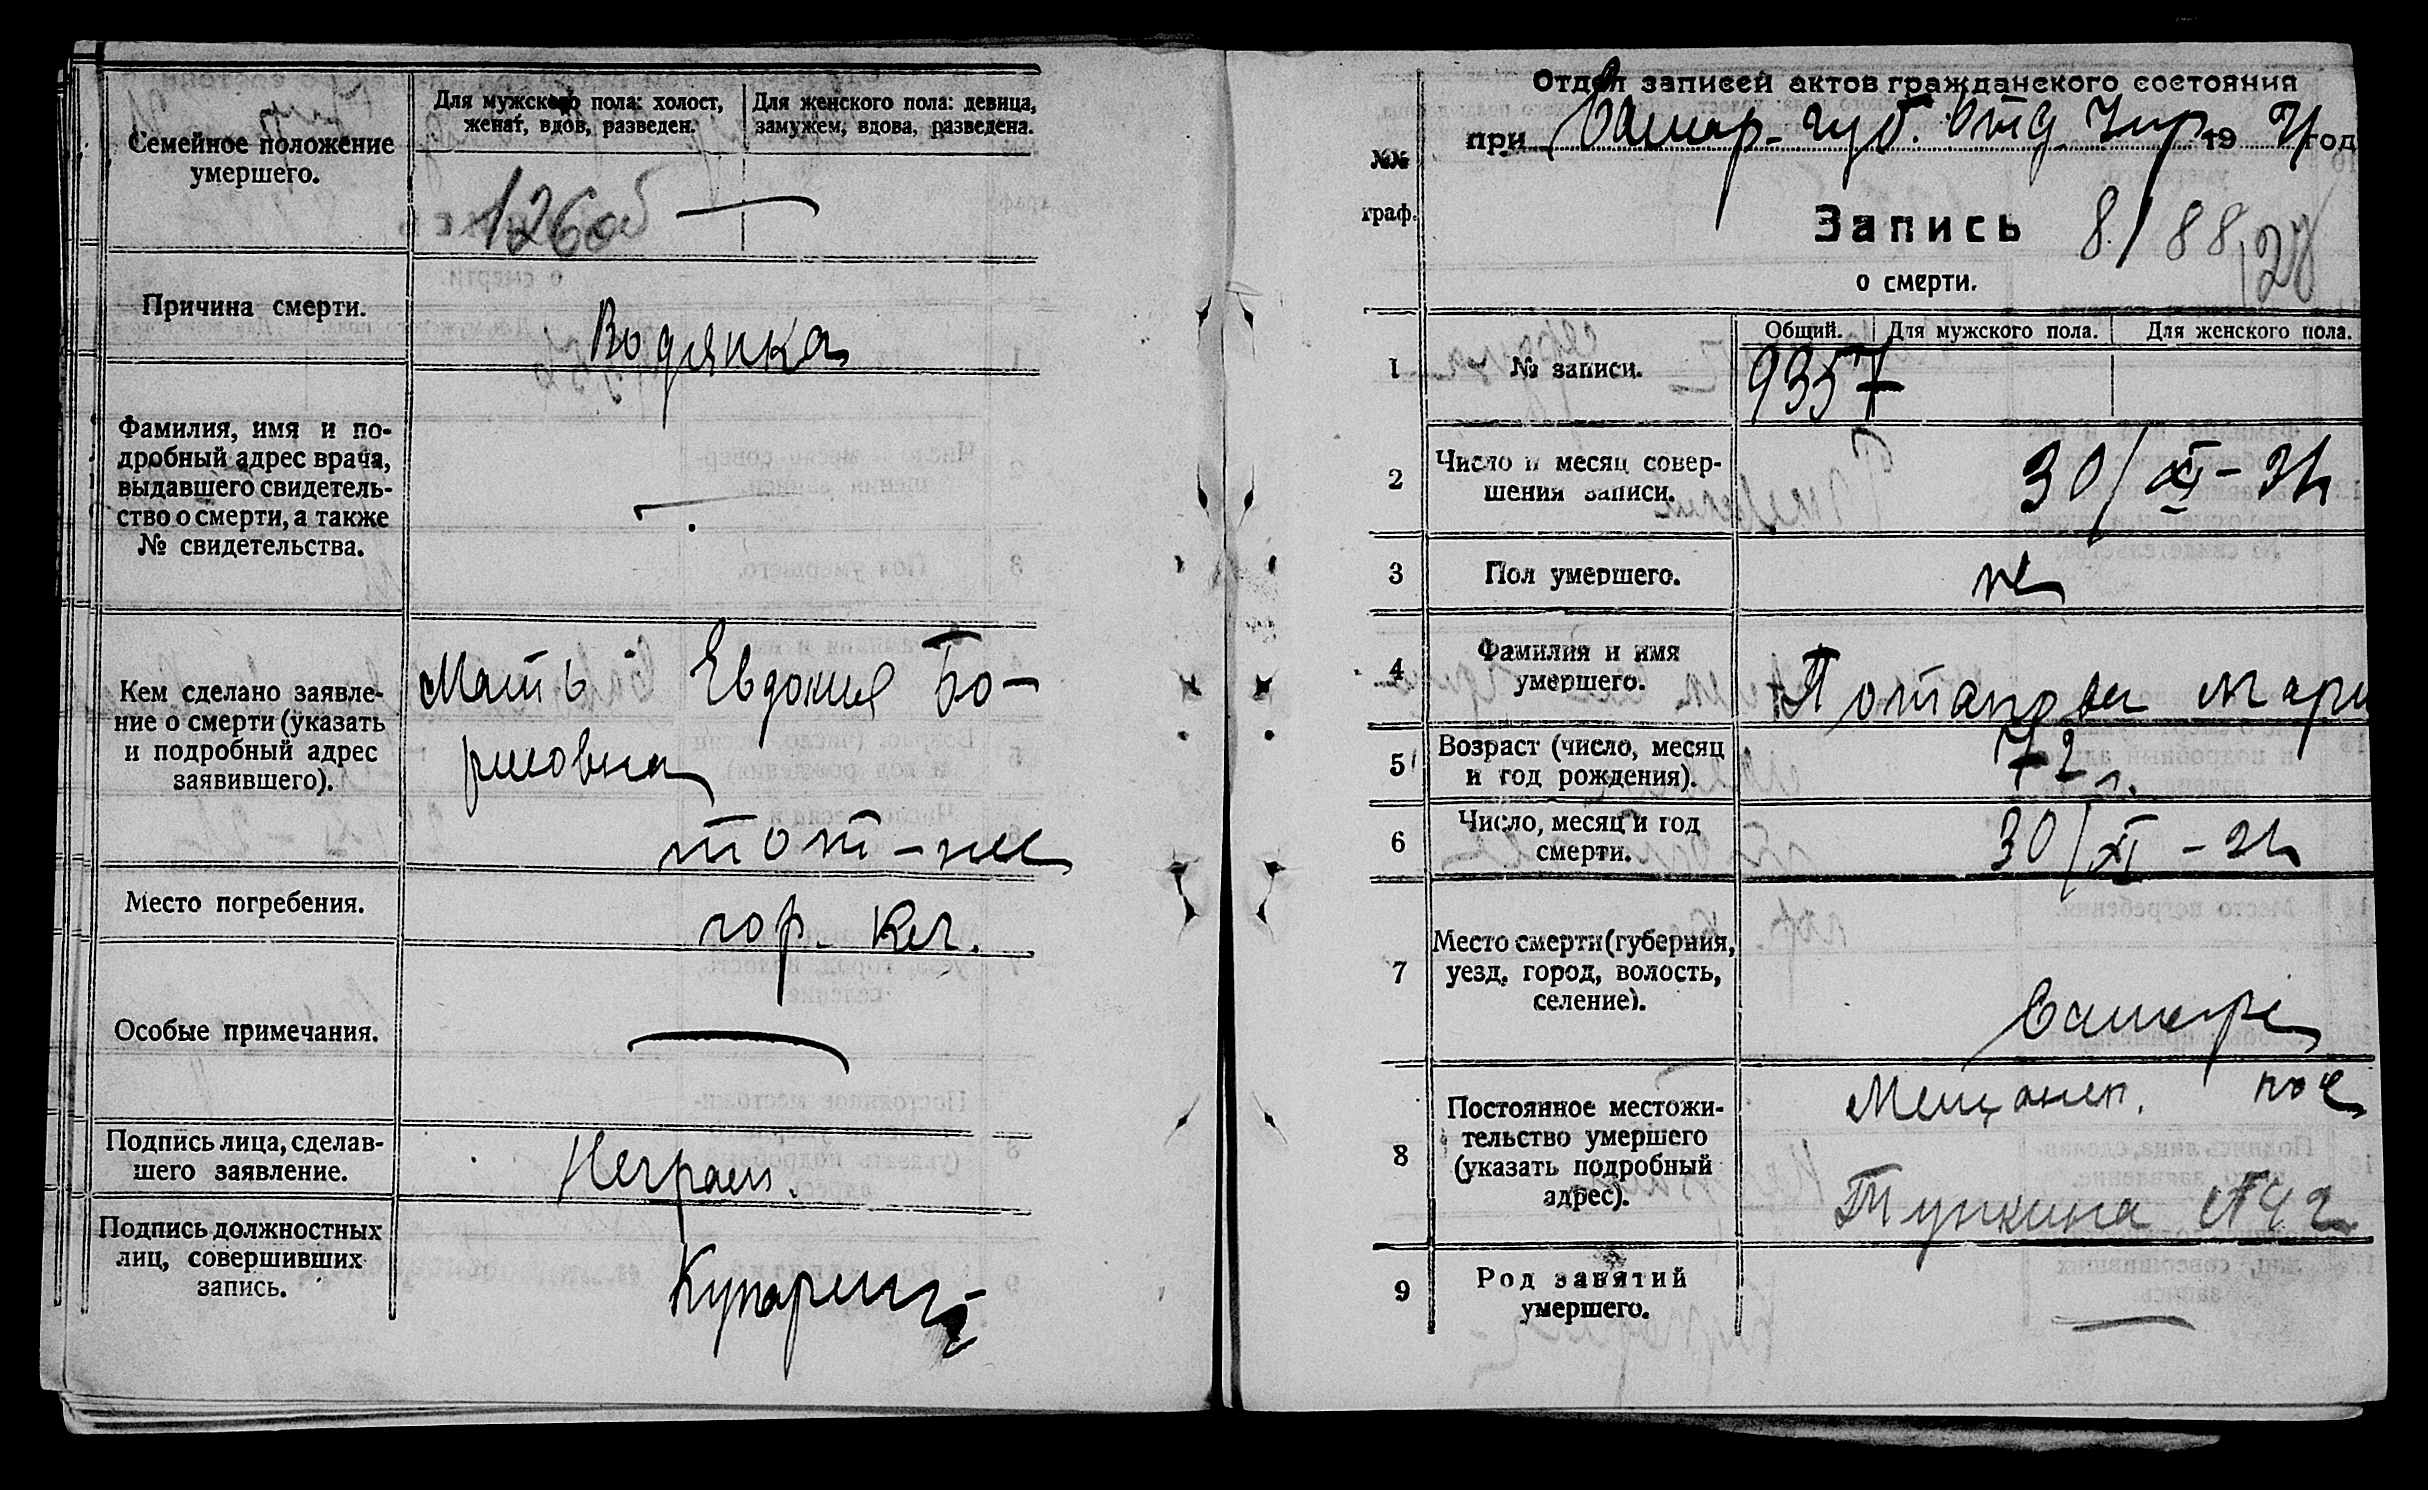 Семейное положение
умершего.
Для мужского пола: холост,
женат, вдов, разведен.
Для женского пола: девица,
замужем, вдова, разведена.
126об
Причина смерти.
Водянка
Фамилия, имя и по-
дробный адрес врача,
выдавшего свидетель-
ство о смерти, а также
№ свидетельства.
Кем сделано заявле-
ние о смерти (указать
и подробный адрес
заявившего).
Мать Евдокия Бо-
рисовна
тот-же
Место погребения.
гор. кл.
Особые примечания.
Подпись лица, сделав-
шего заявление.
Неграм.
Подпись должностных
лиц, совершивших
запись.
Отдел записей актов гражданского состояния
при Самар. губ. отд. Упр. 1921 год
№№
граф.
Запись
8/88
128
о смерти.
Общий. Для мужского пола. Для женского пола.
1 № записи. 9357
2 Число и месяц совер-
шения записи.
30/XI-21
3 Пол умершего. ж
4 Фамилия и имя
умершего.
Потапова Мари
5 Возраст (число, месяц
и год рождения).
72 л.
6 Число, месяц и год
смерти.
30/XI-21
7 Место смерти (губерния,
уезд, город, волость,
селение).
Самаре
8 Постоянное местожи-
тельство умершего
(указать подробный
адрес).
Мещанск. пос
№42
9 Род занятий
умершего.